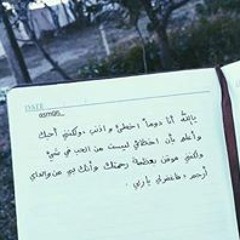 DATE
asmaa_
يا الله أنا دوماً أخطئ و أذنب ، ولكنني أحبك
وأعلم بأن أخطائي ليست من الحب في شيء
ولكنني موقن بعظمة رحمتك وأنك بي من والداي
أرحم ، فاغفرلي ياربي .